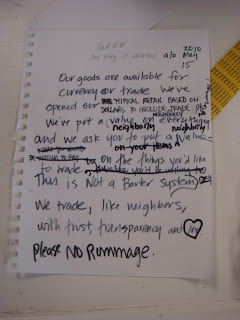 GEFF
The way it works a/o May 2010
15
Our goods are available for
currency or trade. We've
opened our TYPICAL RETAIL BASED ON
DOLLARS TO INCLUDE TRADE.
NEIGHBORLY
We've put a value on everything
neighborly neighborly
and we ask you to put a value
on your items
on the things you'd like
to trade,
This is Not a Barter System
We trade, like neighbors,
with trust, transparency and love
please NO Rummage.